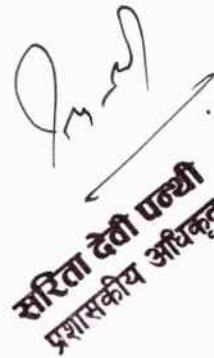 सरिता देवी पन्थी
प्रशासकीय अधिकृत